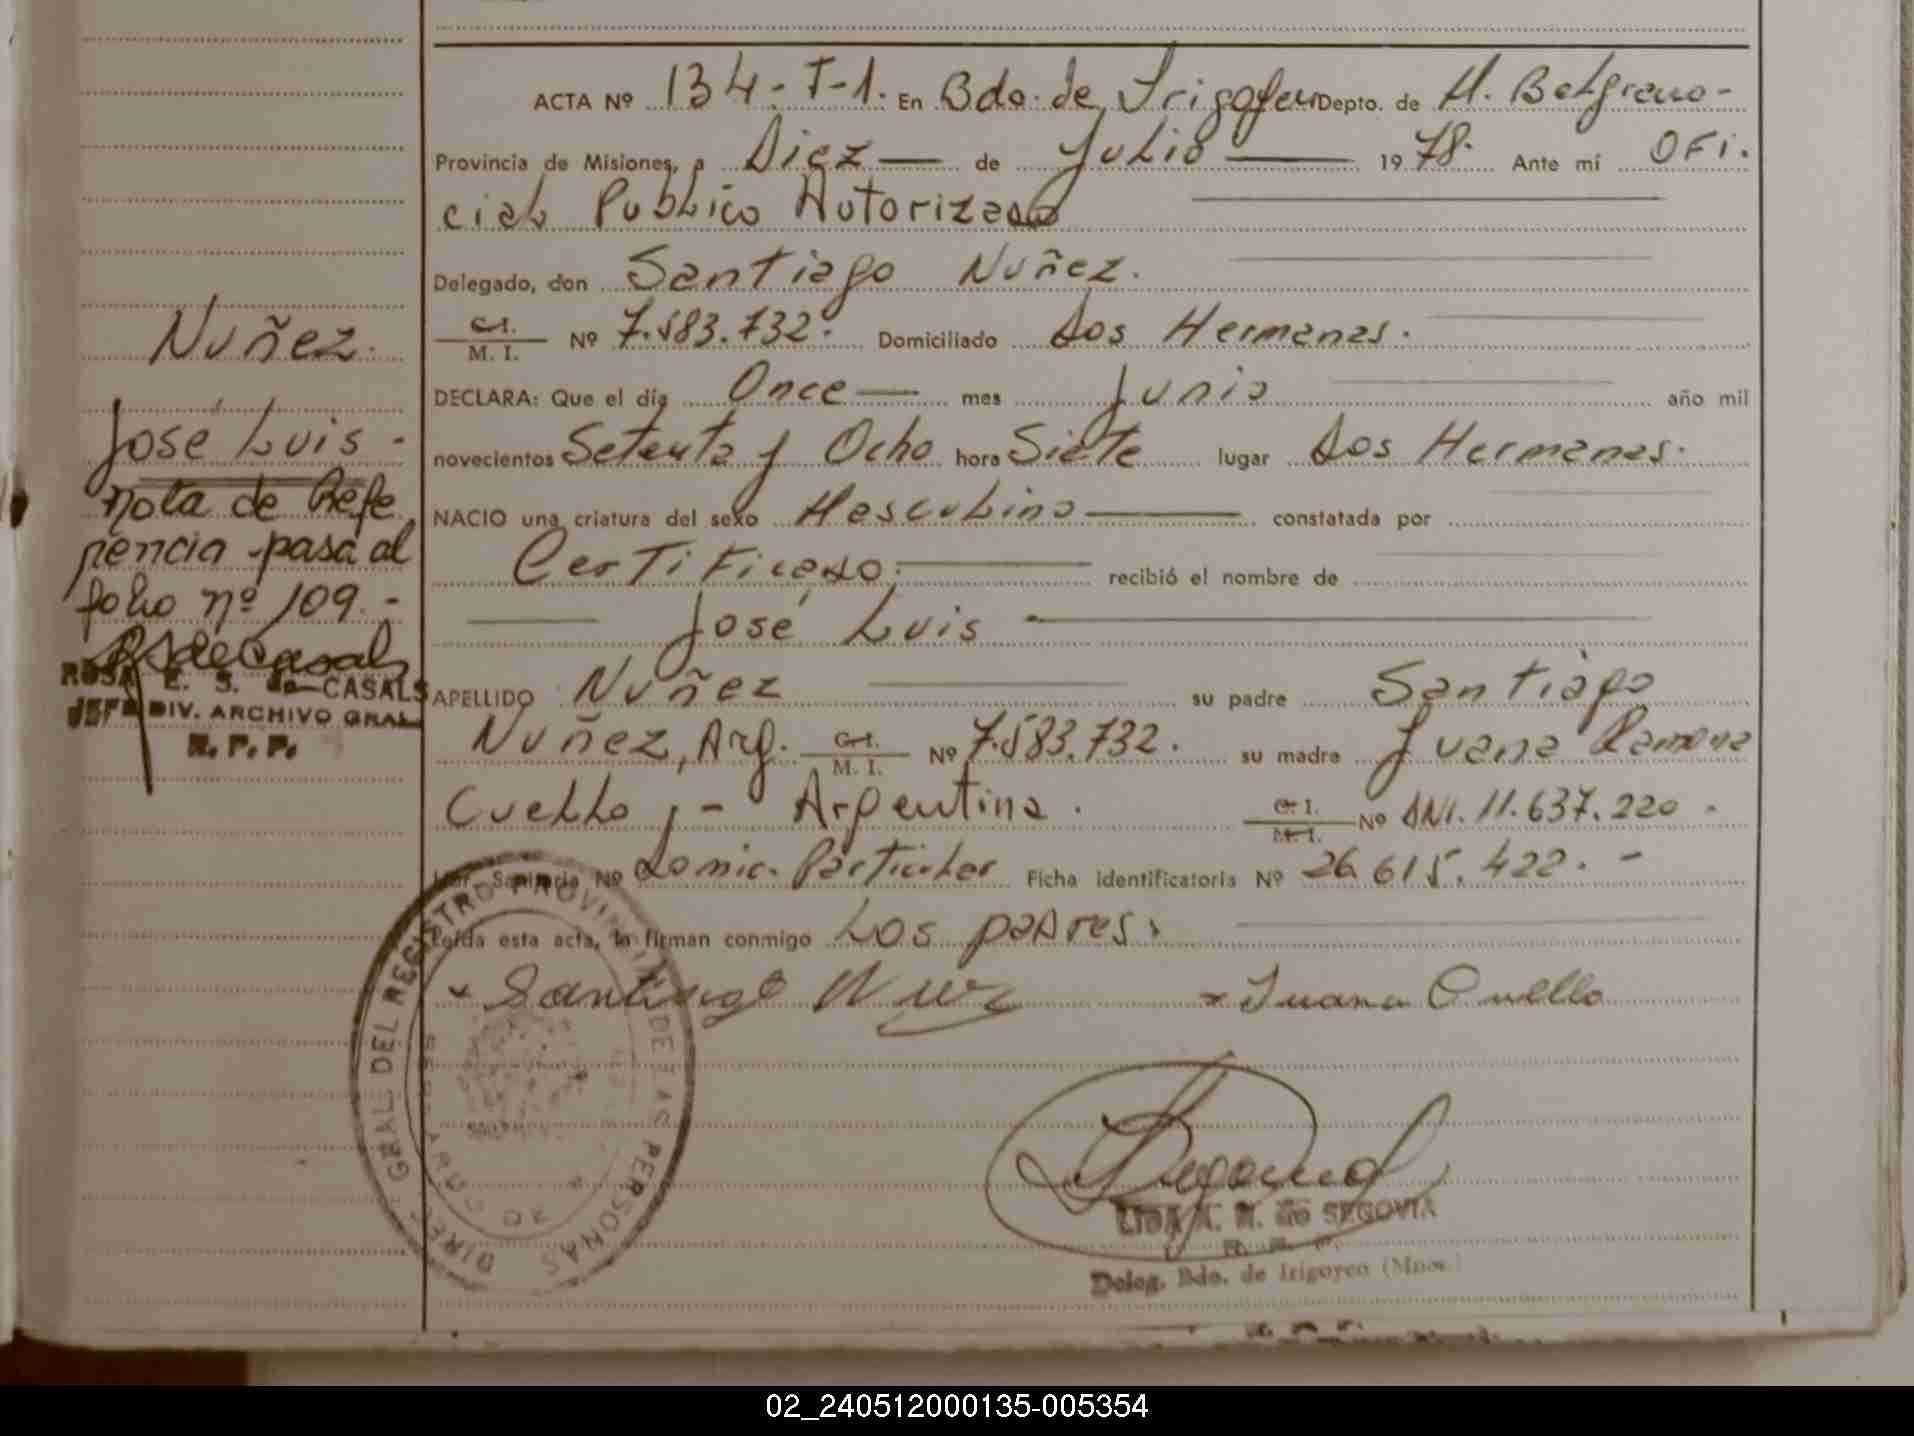 ACTA Nº 134-T-1. En Bdo. de Irigoyen Depto. de M. Belgrano-
Provincia de Misiones, a Diez — de Julio — 1978. Ante mí OFi.
cial Publico Autorizado
Delegado, don Santiago Nuñez.
C.I.
M. I. Nº 7.583.732. Domiciliado Dos Hermanas.
DECLARA: Que el día Once — mes Junio año mil
novecientos Setenta y Ocho hora Siete lugar Dos Hermanas.
NACIO una criatura del sexo Masculino — constatada por
Certificado. — recibió el nombre de
— José Luis —
APELLIDO Nuñez — su padre Santiago
Nuñez, Arg. C.I.
M. I. Nº 7.583.732. su madre Juana Ramona
Cuello, - Argentina. C. I.
M. I. Nº DNI. 11.637.220 -
Sanitaria Nº Domic. Particular Ficha identificatoria Nº 26.615.422. -
Leída esta acta, la firman conmigo Los padres.
Santiago Nuñez x Juana Cuello
Nuñez.
José Luis -
nota de Refe
rencia pasa al
folio nº 109. -
ROSA E. S. de CASALS
JEFE DIV. ARCHIVO GRAL
R. P. P.
DIREC. GRAL DEL REGISTRO PROVINCIAL DE LAS PERSONAS
LIDA de SEGOVIA
Deleg. Bdo. de Irigoyen (Mnes.)
02_240512000135-005354